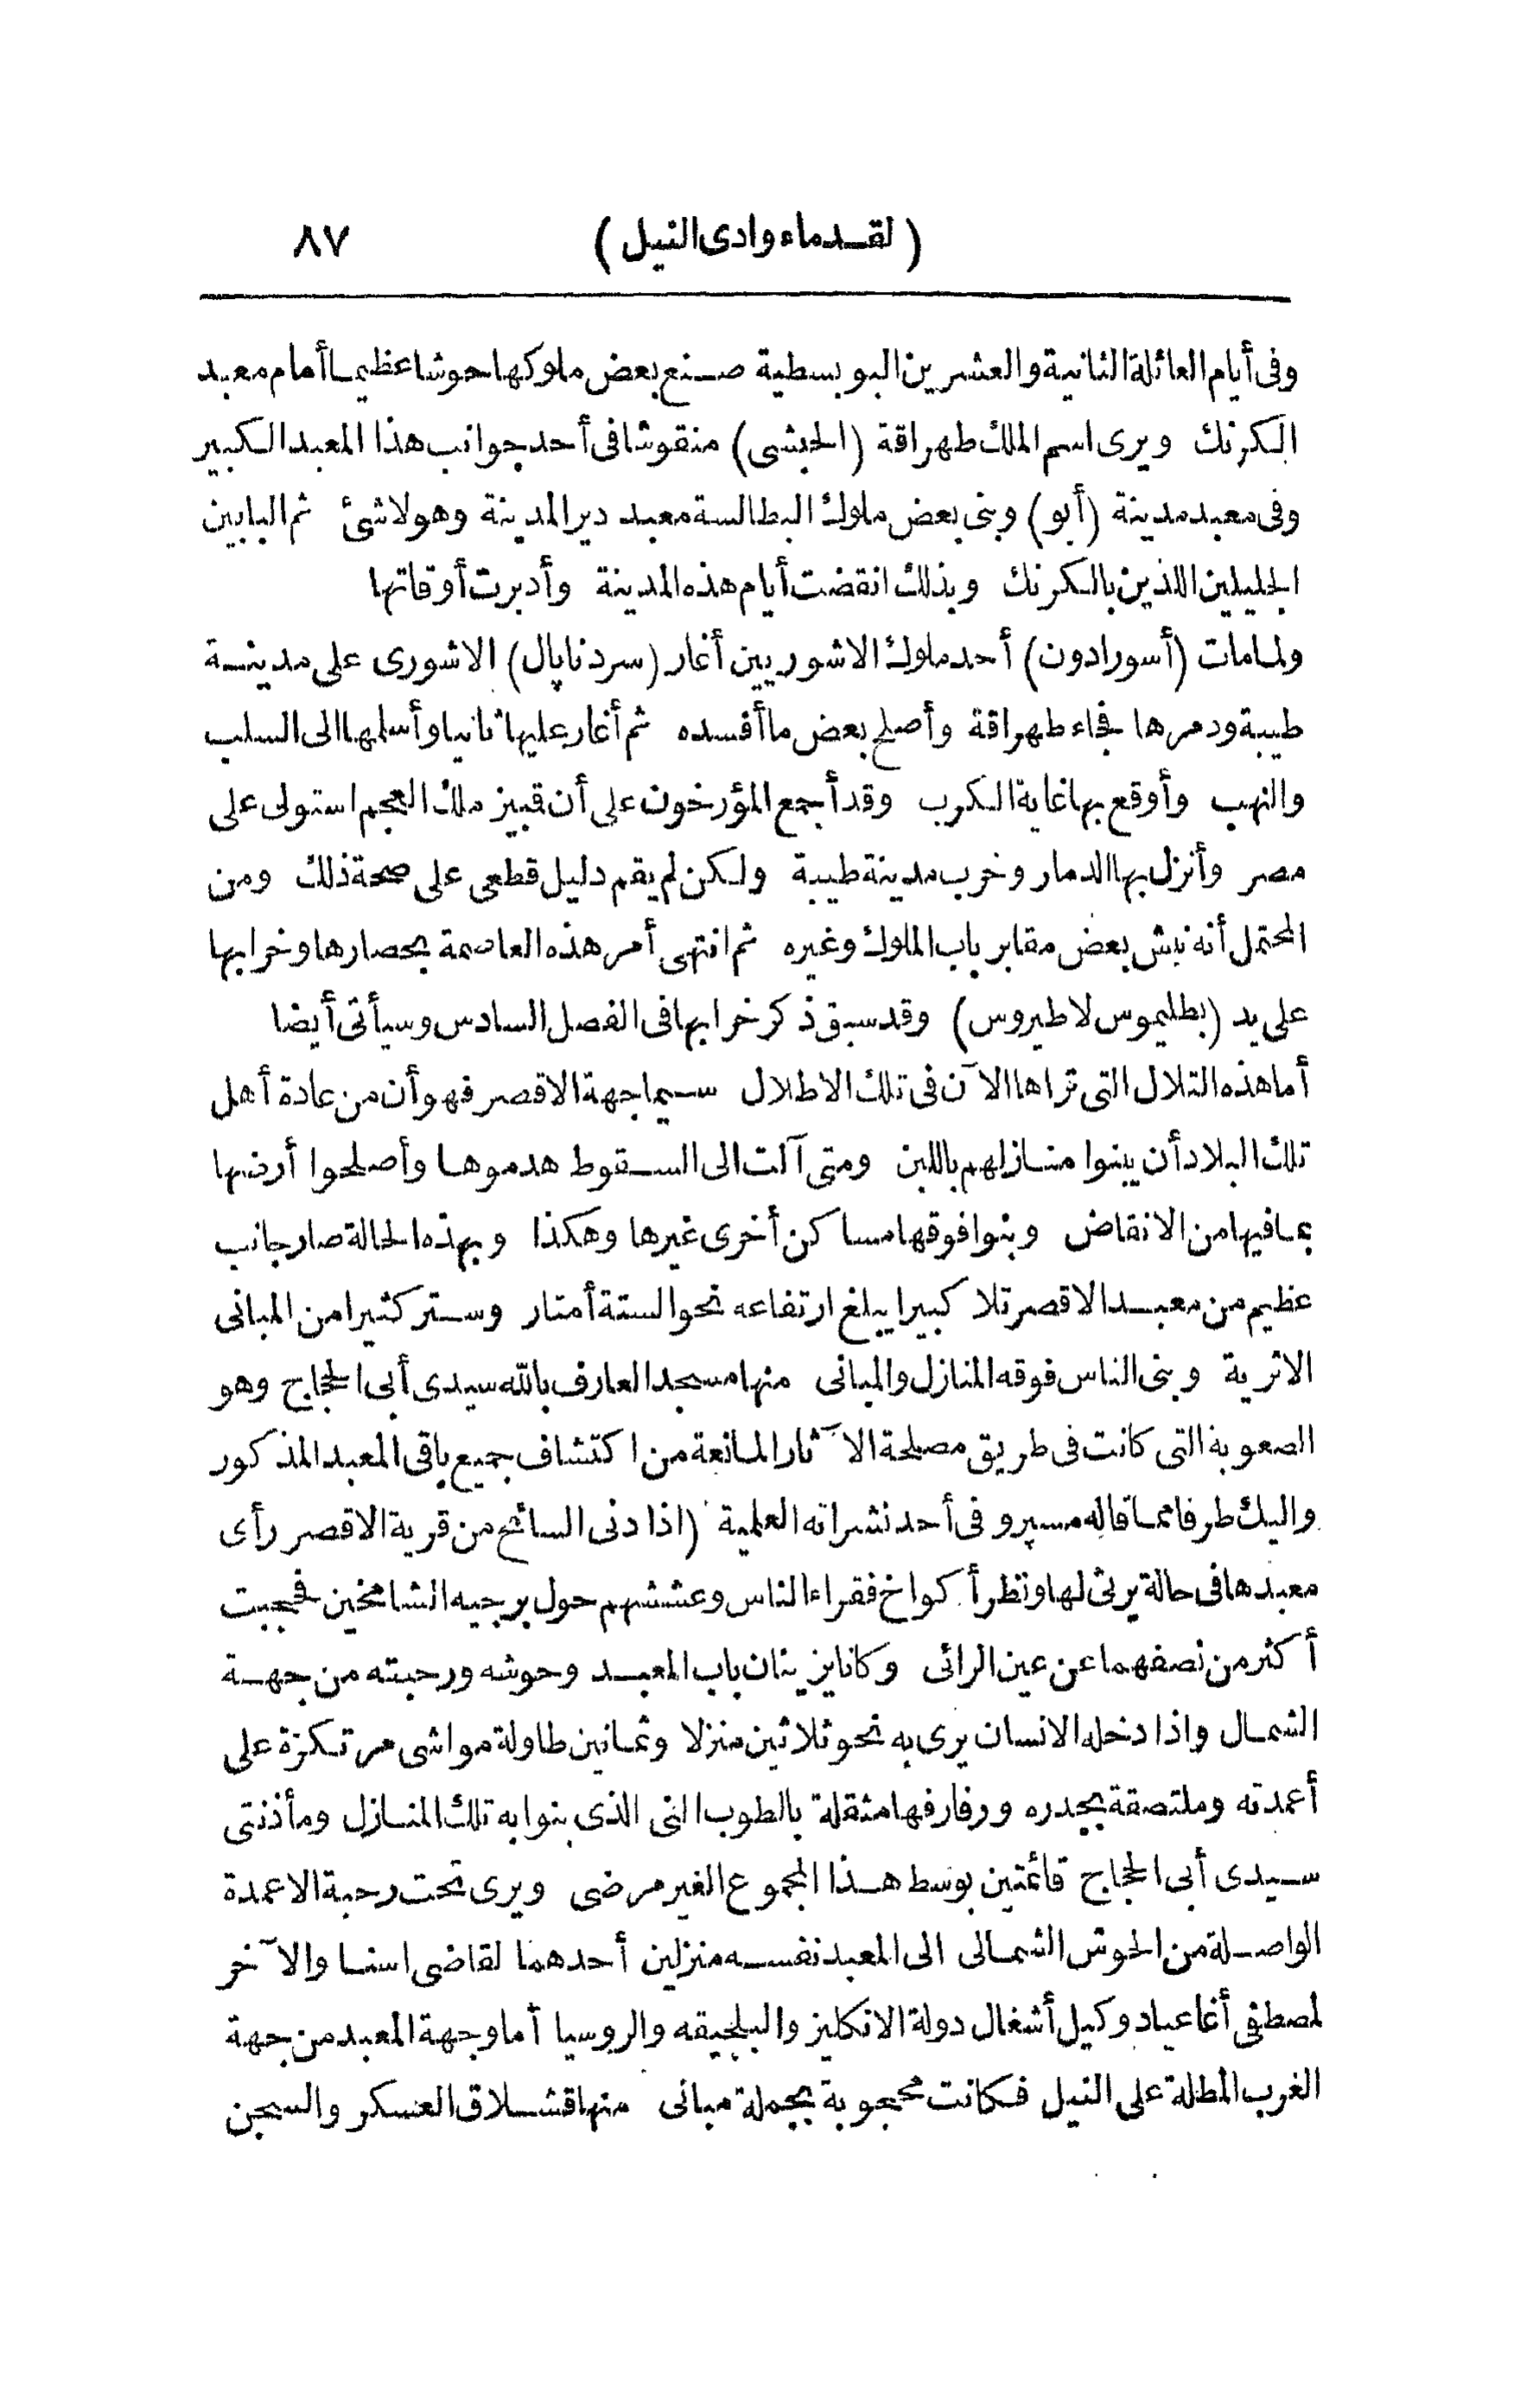 (لقدماء وادى النيل) ٨٧
وفى أيام العائلة الثانية والعشرين البوبسطية صنع بعض ملوكها حوشا عظيما أمام معبد
الكرنك ويرى اسم الملك طهراقة (الحبشى) منقوشا فى أحد جوانب هذا المعبد الكبير
وفى معبد مدينة (أبو) وبنى بعض ملوك البطالسة معبد دير المدينة وهو لاشئ ثم البابين
الجليلين اللذين بالكرنك وبذلك انقضت أيام هذه المدينة وأدبرت أوقاتها
ولمامات (أسورادون) أحد ملوك الاشوريين أغار (سردناپال) الاشورى على مدينة
طيبة ودمرها فجاء طهراقة وأصلح بعض ما أفسده ثم أغار عليها ثانيا وأسلمها الى السلب
والنهب وأوقع بها غاية الكرب وقد أجمع المؤرخون على أن قمبيز ملك العجم استولى على
مصر وأنزل بها الدمار وخرب مدينة طيبة ولكن لم يقم دليل قطعى على صحة ذلك ومن
المحتمل أنه نبش بعض مقابر باب الملوك وغيره ثم انتهى أمر هذه العاصمة بحصارها وخرابها
على يد (بطليموس لاطيروس) وقد سبق ذكر خرابها فى الفصل السادس وسيأتى أيضا
أما هذه التلال التى تراها الآن فى تلك الاطلال سيما جهة الاقصر فهو أن من عادة أهل
تلك البلاد أن يبنوا منازلهم باللبن ومتى آلت الى السقوط هدموها وأصلحوا أرضها
بما فيها من الانقاض وبنوا فوقها مساكن أخرى غيرها وهكذا وبهذه الحالة صار جانب
عظيم من معبد الاقصر تلا كبيرا يبلغ ارتفاعه نحو الستة أمتار وستر كثيرا من المبانى
الاثرية وبنى الناس فوقه المنازل والمبانى منها مسجد العارف بالله سيدى أبى الحجاج وهو
الصعوبة التى كانت فى طريق مصلحة الآثار المانعة من اكتشاف جميع باقى المعبد المذكور
واليك طرفا مما قاله مسپرو فى أحد نشراته العلمية (اذا دنى السائح من قرية الاقصر رأى
معبدها فى حالة يرثى لها ونظر أكواخ فقراء الناس وعششهم حول برجيه الشامخين فحجبت
أكثر من نصفهما عن عين الرائى وكانا يزينان باب المعبد وحوشه ورحبته من جهة
الشمال واذا دخله الانسان يرى به نحو ثلاثين منزلا وثمانين طاولة مواشى مرتكزة على
أعمدته وملتصقة بجدره ورفارفها مثقلة بالطوب النى الذى بنوا به تلك المنازل ومأذنتى
سيدى أبى الحجاج قائمتين بوسط هذا المجموع الغير مرضى ويرى تحت رحبة الاعمدة
الواصلة من الحوش الشمالى الى المعبد نفسه منزلين أحدهما لقاضى اسنا والآخر
لمصطفى أغا عياد وكيل أشغال دولة الانكليز والبلجيقه والروسيا أما وجهة المعبد من جهة
الغرب المطلة على النيل فكانت محجوبة بجملة مبانى منها قشلاق العسكر والسجن